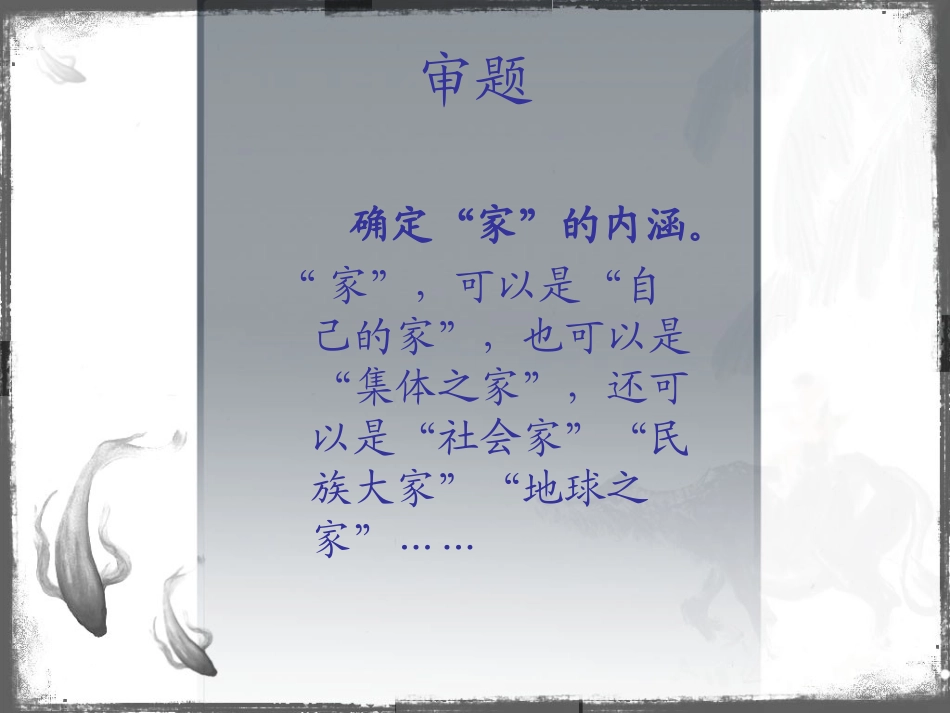 审题
确定“家”的内涵。
“家”，可以是“自
己的家”，也可以是
“集体之家”，还可
以是“社会家”“民
族大家”“地球之
家”……